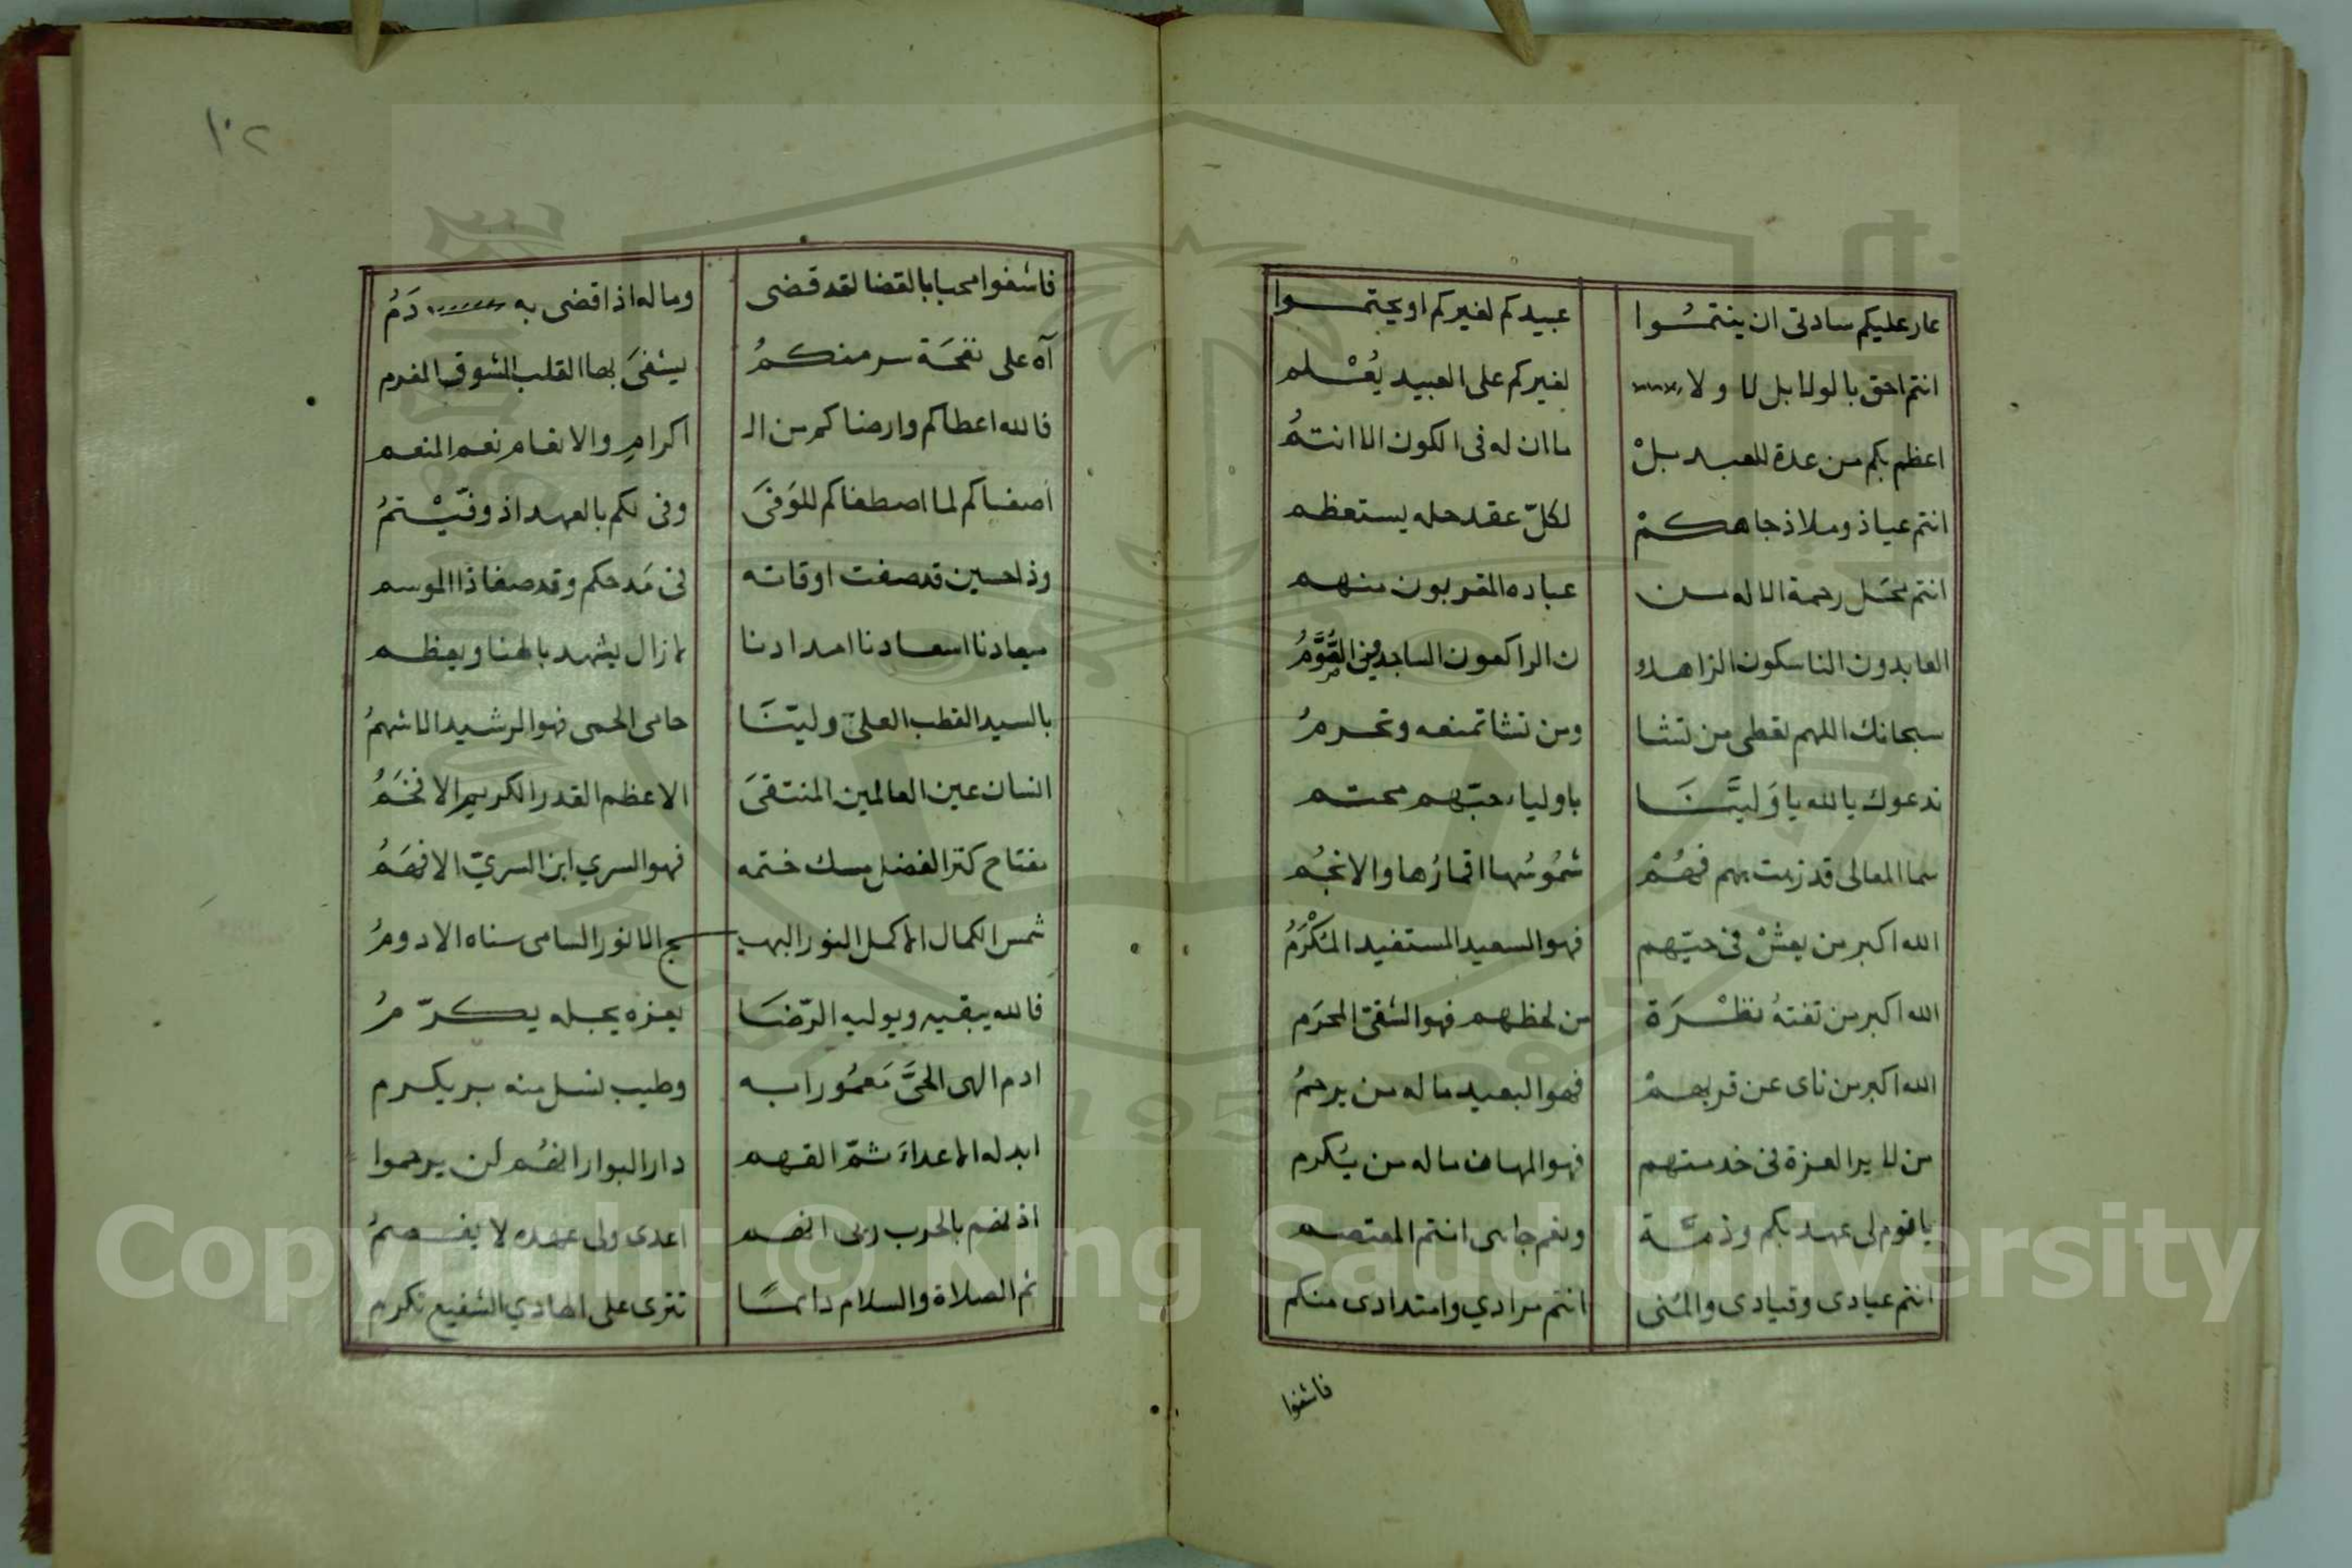 عار عليكم سادتي ان ينتمُوا عبيدكم لغيركم او يحتموا
انتم احق بالولا بل لا ولا لغيركم على العبيد يُعْلم
اعظم بكم من عدة للعبد بلْ ما ان له في الكون الا انتمُ
انتم عياذ وملاذ جاهكمْ لكلّ عقد حله يستعظم
انتم محَل رحمة الاله من عباده المقربون منهم
العابدون الناسكون الزاهدو ن الراكعون الساجدون القُوَّمُ
سبحانك اللهم تعطى من تشا ومن تشا تمنعه وتحرمُ
ندعوك يا لله يا وَليَّنَا باولياء حبّهم محتم
سما المعالى قد زهت بهم فهُمْ شمُوسُها اقمارُها والانجُم
الله اكبر من يعشْ في حبّهم فهو السعيد المستفيد المكْرَمُ
الله اكبر من تفتهُ نظْرَة من لحظهم فهو الشقىّ المحرَم
الله اكبر من ناى عن قربهمْ فهو البعيد ما له من يرحمُ
من لا يرا العزة في خدمتهم فهو المهان ما له من يُكرم
يا قوم لى عهد بكم وذمّة ونعم جاهى انتم المعتصم
انتم عيادى وقيادى والمُنى انتم مرادي وامتدادى منكم
فاشفوا
١٠٢
فاشفوا محبا بالقضا لقد قضى وما له اذا قضى به دَمُ
آه على نفحَة سر منكمُ يشفىَ بها القلب المشوق المغرم
فالله اعطاكم وارضاكم من الـ اكرام والانعام نعم المنعم
اصفاكم لما اصطفاكم للوَفىَ وفى لكم بالعهد اذ وفّيْتمُ
وذا حسين قد صفت اوقاته في مَدحكم وقد صفا ذا الموسم
ميعادنا اسعادنا امدادنا لا زال يشهد بالهنا ويعظم
بالسيد القطب العلىّ وليّنَا حامى الحمى فهو الرشيد الاشهمُ
انسان عين العالمين المنتقىَ الاعظم القدر الكريم الافخَمُ
مفتاح كنز الفضل مسك ختمه فهو السري ابن السريّ الافهَمُ
شمس الكمال الاكمل النور البهيـ ـج الانور السامى سناه الادومُ
فالله يبقيه ويوليه الرّضَا يعزه يجله يكرّمُ
ادم الهى الحىَّ مَعمُورا به وطيب نسل منه بر يكرم
ابد له الاعداءَ ثمّ القهم دار البوار انهُم لن يرحموا
اذنهم بالحرب ربى انهم اعدى ولى عهده لا يفصمُ
ثم الصلاة والسلام دائمًا تترى على الهادي الشفيع تكرم
Copyright © King Saud University
1957